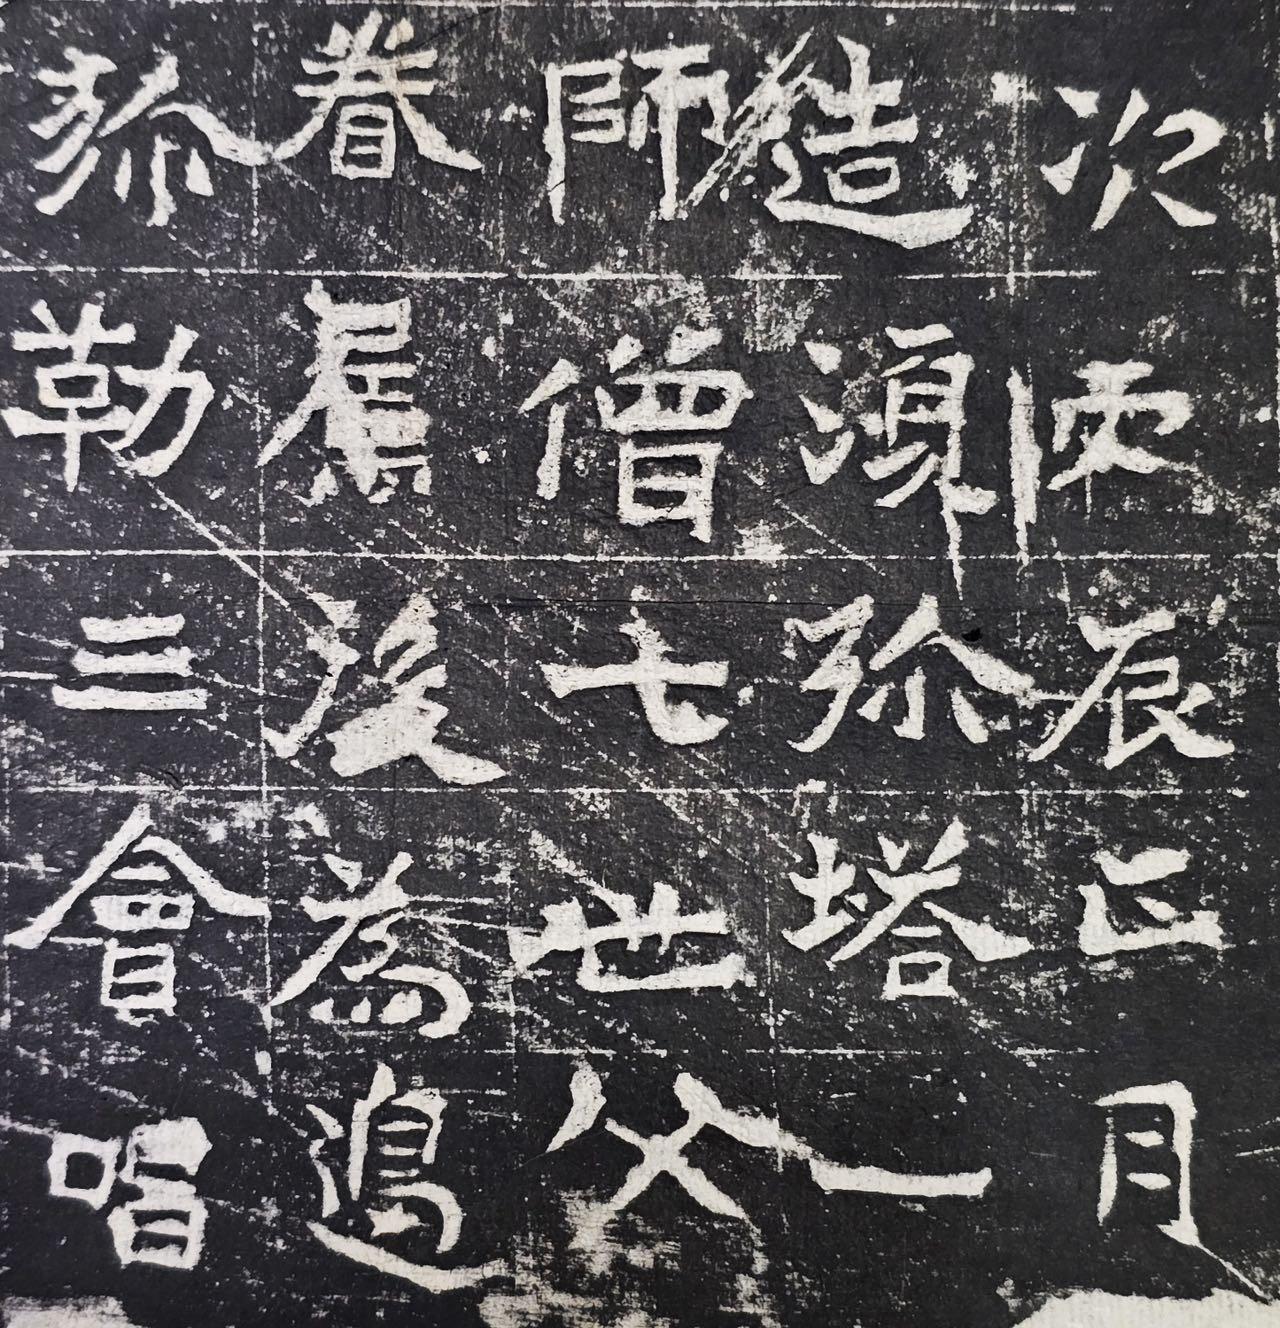 次丙辰正月
造湏弥塔一
師僧七世父
眷屬後為遇
弥勒三會唱